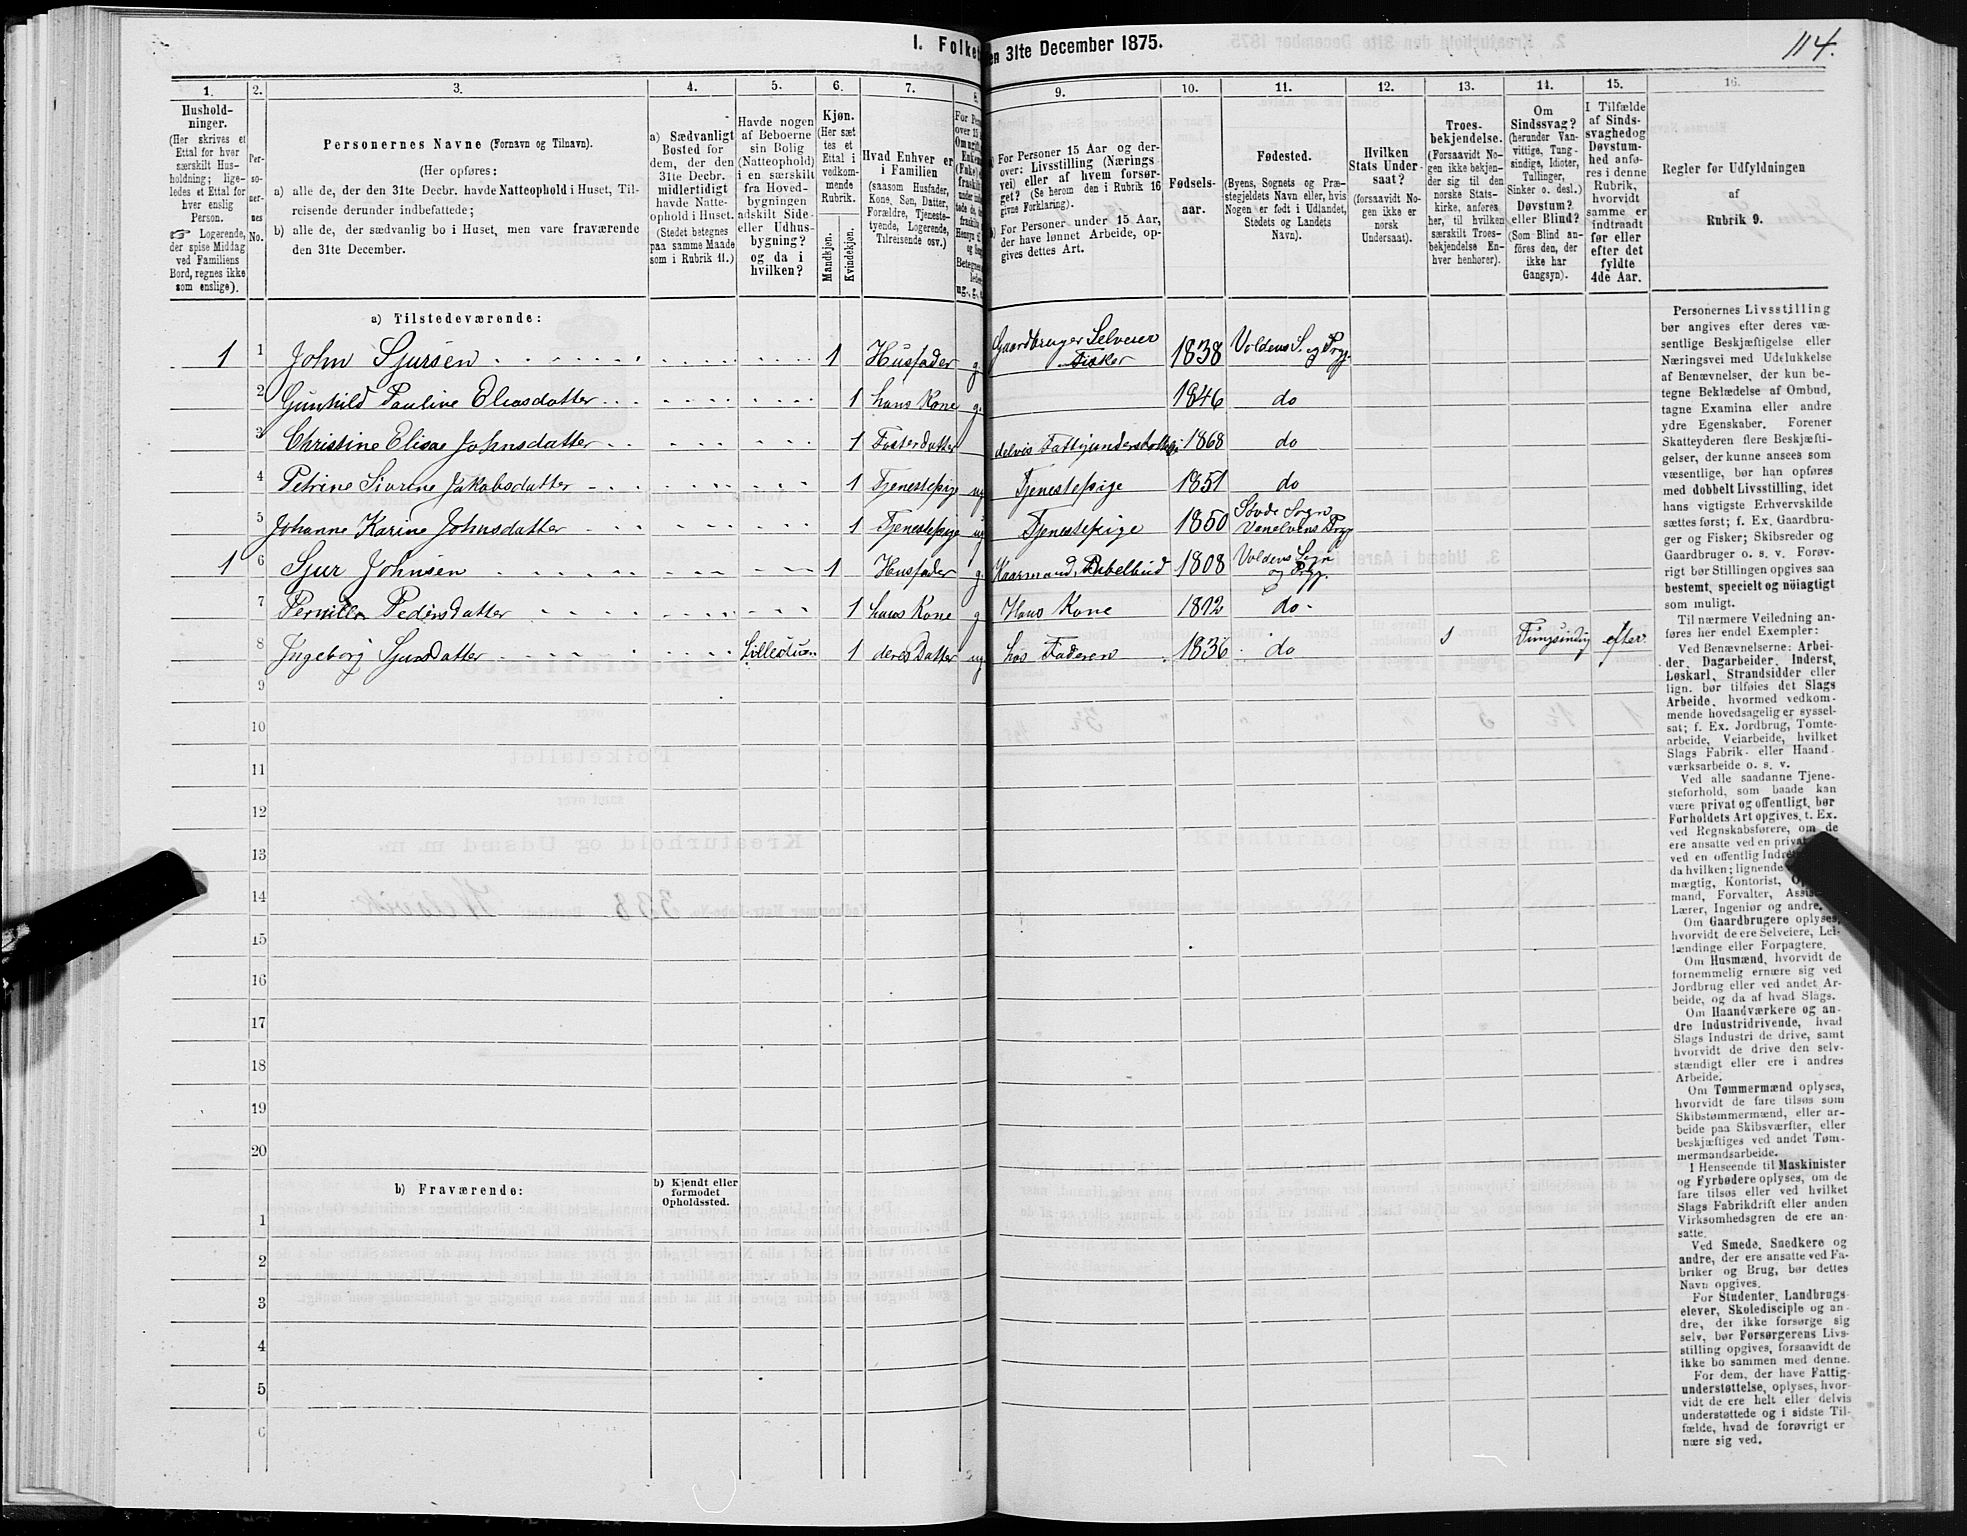 1. Folket
en 31te December 1875.
114.
1.
2.
3.
4.
5.
6.
7.
8.
9.
10.
11.
12.
13.
14.
15.
16.
Hushold-
ninger.
(Her skrives et
Ettal for hver
særskilt Hus-
holdning; lige-
ledes et Ettal for
hver enslig
Person.
☞ Logerende,
der spise Middag
ved Familiens
Bord, regnes ikke
som enslige).
Per-
so-
ner-
nes
No.
Personernes Navne (Fornavn og Tilnavn).
(Her opføres:
a) alle de, der den 31te Decbr. havde Natteophold i Huset, Til-
reisende derunder indbefattede;
b) alle de, der sædvanlig bo i Huset, men vare fraværende
den 31te December.
a) Sædvanligt
Bosted for
dem, der den
31te Decbr.
midlertidigt
havde Natte-
ophold i Huset.
(Stedet betegnes
paa samme Maade
som i Rubrik 11.)
Havde nogen
af Beboerne
sin Bolig
(Natteophold)
i en særskilt
fra Hoved-
bygningen
adskilt Side-
eller Udhus-
bygning?
og da i
hvilken?
Kjøn.
(Her sæt-
tes et
Ettal i
vedkom-
mende
Rubrik.
Mandkjøn.
Kvindekjøn.
Hvad Enhver er
i Familien
(saasom Husfader,
Kone, Søn, Datter,
Forældre, Tjeneste-
tyende, Logerende,
Tilreisende osv.)
For Personer 15 Aar og der-
over: Livsstilling (Nærings
vei) eller af hvem forsør-
get? (Se herom den i Rubrik 16
givne Forklaring).
b) For Personer under 15 Aar,
der have lønnet Arbeide, op-
gives dettes Art.
Fødsels-
aar.
Fødested.
(Byens, Sognets og Præ-
stegjeldets Navn eller, hvis
Nogen er født i Udlandet,
Stedets og Landets
Navn).
Hvilken
Stats Under-
saat?
(forsaavidt No-
gen ikke er
norsk
Undersaat).
Troes-
bekjendelse.
(Forsaavidt No-
gen ikke bekjen-
der sig til den
norske Stats-
kirke, anføres
her, til hvilken
særskilt Troes-
bekjendelse En-
hver henhører).
Om
Sindssvag?
(herunder Van-
vittige, Tung-
sindige, Idioter,
Tullinger,
Sinker o. desl.)
Døvstum?
eller Blind?
(Som Blind an-
føres den, der
ikke har
Gangsyn).
I Tilfælde
af Sinds-
svaghed og
Døvstum-
hed anfø-
res i denne
Rubrik,
hvorvidt
samme er
indtraadt
før eller
efter det
fyldte
4de Aar.
Regler for Udfyldningen
af
Rubrik 9.
a) Tilstedeværende:
1 1 John Sjursen 1 Husfader g Gaardbruger Selveier Fisker 1838 Voldens S. og Prgj.
2 Gunhild Pauline Eliasdatter 1 hans Kone g. 1846 do
3 Christine Elisae Johnsdatter 1 Fosterdatter delvis Fattigunderstøttelse 1868 do
4 Petrine Sivrine Jakobsdatter 1 Tjenestepige ug Tjenestepige 1851 do
5 Johanne Karine Johnsdatter 1 Tjenestepige ug Tjenestepige 1850 Sogn Prgj
1 6 Sjur Johnsen 1 Husfader g Kaarmand, 1808 Voldens Sogn og Prgj.
7 Pernille Pedersdatter 1 hans Kone g Hans Kone 1812 do
8 Ingeborg Sjursdatter Lillestuen 1 deres Datter ug hos Faderen 1836 do 1 Tungsindig efter
9
10
11
12
13
14
15
16
17
18
19
20
b) Fraværende:
b) Kjendt eller
formodet
Opholdssted.
1
2
3
4
5
6
Personernes Livsstilling
bør angives efter deres væ-
sentlige Beskjæftigelse eller
Næringsvei med Udelukkelse
af Benævnelser, der kun be-
tegne Beklædelse af Ombud,
tagne Examina eller andre
ydre Egenskaber. Forener
Skatteyderen flere Beskjæfti-
gelser, der kunne ansees som
væsentlige, bør han opføres
med dobbelt Livsstilling, idet
hans vigtigste Erhvervskilde
sættes først; f. Ex. Gaardbru-
ger og Fisker; Skibsreder og
Gaardbruger o. s. v. Forøv-
rigt bør Stillingen opgives saa
bestemt, specielt og nøiagtigt
som muligt.
Til nærmere Veiledning an-
føres her endel Exempler:
Ved Benævnelserne: Arbei-
der, Dagarbeider, Inderst,
Løskarl, Strandsidder eller
lign. bør tilføies det Slags
Arbeide, hvormed vedkom-
mende hovedsagelig er syssel-
sat; f. Ex. Jordbrug, Tomte-
arbeide, Veiarbeide, hvilket
Slags Fabrik- eller Haand-
værksarbeide o. s. v.
Ved alle saadanne Tjene-
steforhold, som baade kan
være privat og offentligt, bør
Forholdets Art opgives, t. Ex.
ved Regnskabsførere, om de
ere ansatte ved en privat
ved en offentlig
da hvilken; lignende
mægtig, Kontorist,
mand, Forvalter,
Lærer, Ingeniør og andre.
Om Gaardbrugere oplyses,
hvorvidt de ere Selveiere, Lei-
lændinge eller Forpagtere.
Om Husmænd, hvorvidt de
fornemmelig ernære sig ved
Jordbrug eller ved andet Ar-
beide, og da af hvad Slags.
Om Haandværkere og an-
dre Industridrivende, hvad
Slags Industri de drive, samt
hvorvidt de drive den selv-
stændigt eller ere i andres
Arbeide.
Om Tømmermænd oplyses,
hvorvidt de fare tilsøs som
Skibstømmermænd, eller ar-
beide paa Skibsværfter, eller
beskjæftiges ved andet Tøm-
mermandsarbeide.
I Henseende til Maskinister
og Fyrbødere oplyses, om de
fare tilsøs eller ved hvilket
Slags Fabrikdrift eller anden
Virksomhedsgren de ere an-
satte.
Ved Smede, Snedkere og
andre, der ere ansatte ved Fa-
briker og Brug, bør dettes
Navn opgives.
For Studenter, Landbrugs-
elever, Skoledisciple og an-
dre, der ikke forsørge sig
selv, bør Forsørgerens Livs-
stilling opgives, forsaavidt de
ikke bo sammen med denne.
For dem, der have Fattig-
understøttelse, oplyses, hvor-
vidt de ere helt eller delvis
understøttede og i sidste Til-
fælde, hvad de forøvrigt er
nære sig ved.